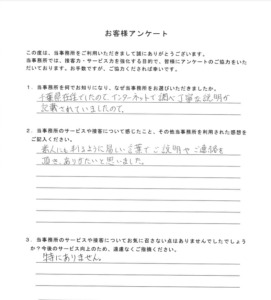 お客様アンケート
この度は、当事務所をご利用いただきまして誠にありがとうございます。
当事務所では、接客力・サービス力を強化する目的で、皆様にアンケートのご協力をいた
だいております。お手数ですが、ご協力くだされば幸いです。
1．当事務所を何でお知りになり、なぜ当事務所をお選びいただきましたか。
千葉県在住でしたので、インターネットで調べ丁寧な説明が
記載されていましたので。
2．当事務所のサービスや接客について感じたこと、その他当事務所を利用された感想を
ご記入ください。
素人にも判るように易しい言葉でご説明やご連絡を
頂き、ありがたいと思いました。
3．当事務所のサービスや接客についてお気に召さない点はありませんでしたでしょう
か？今後のサービス向上のため、遠慮なくご指摘ください。
特にありません。